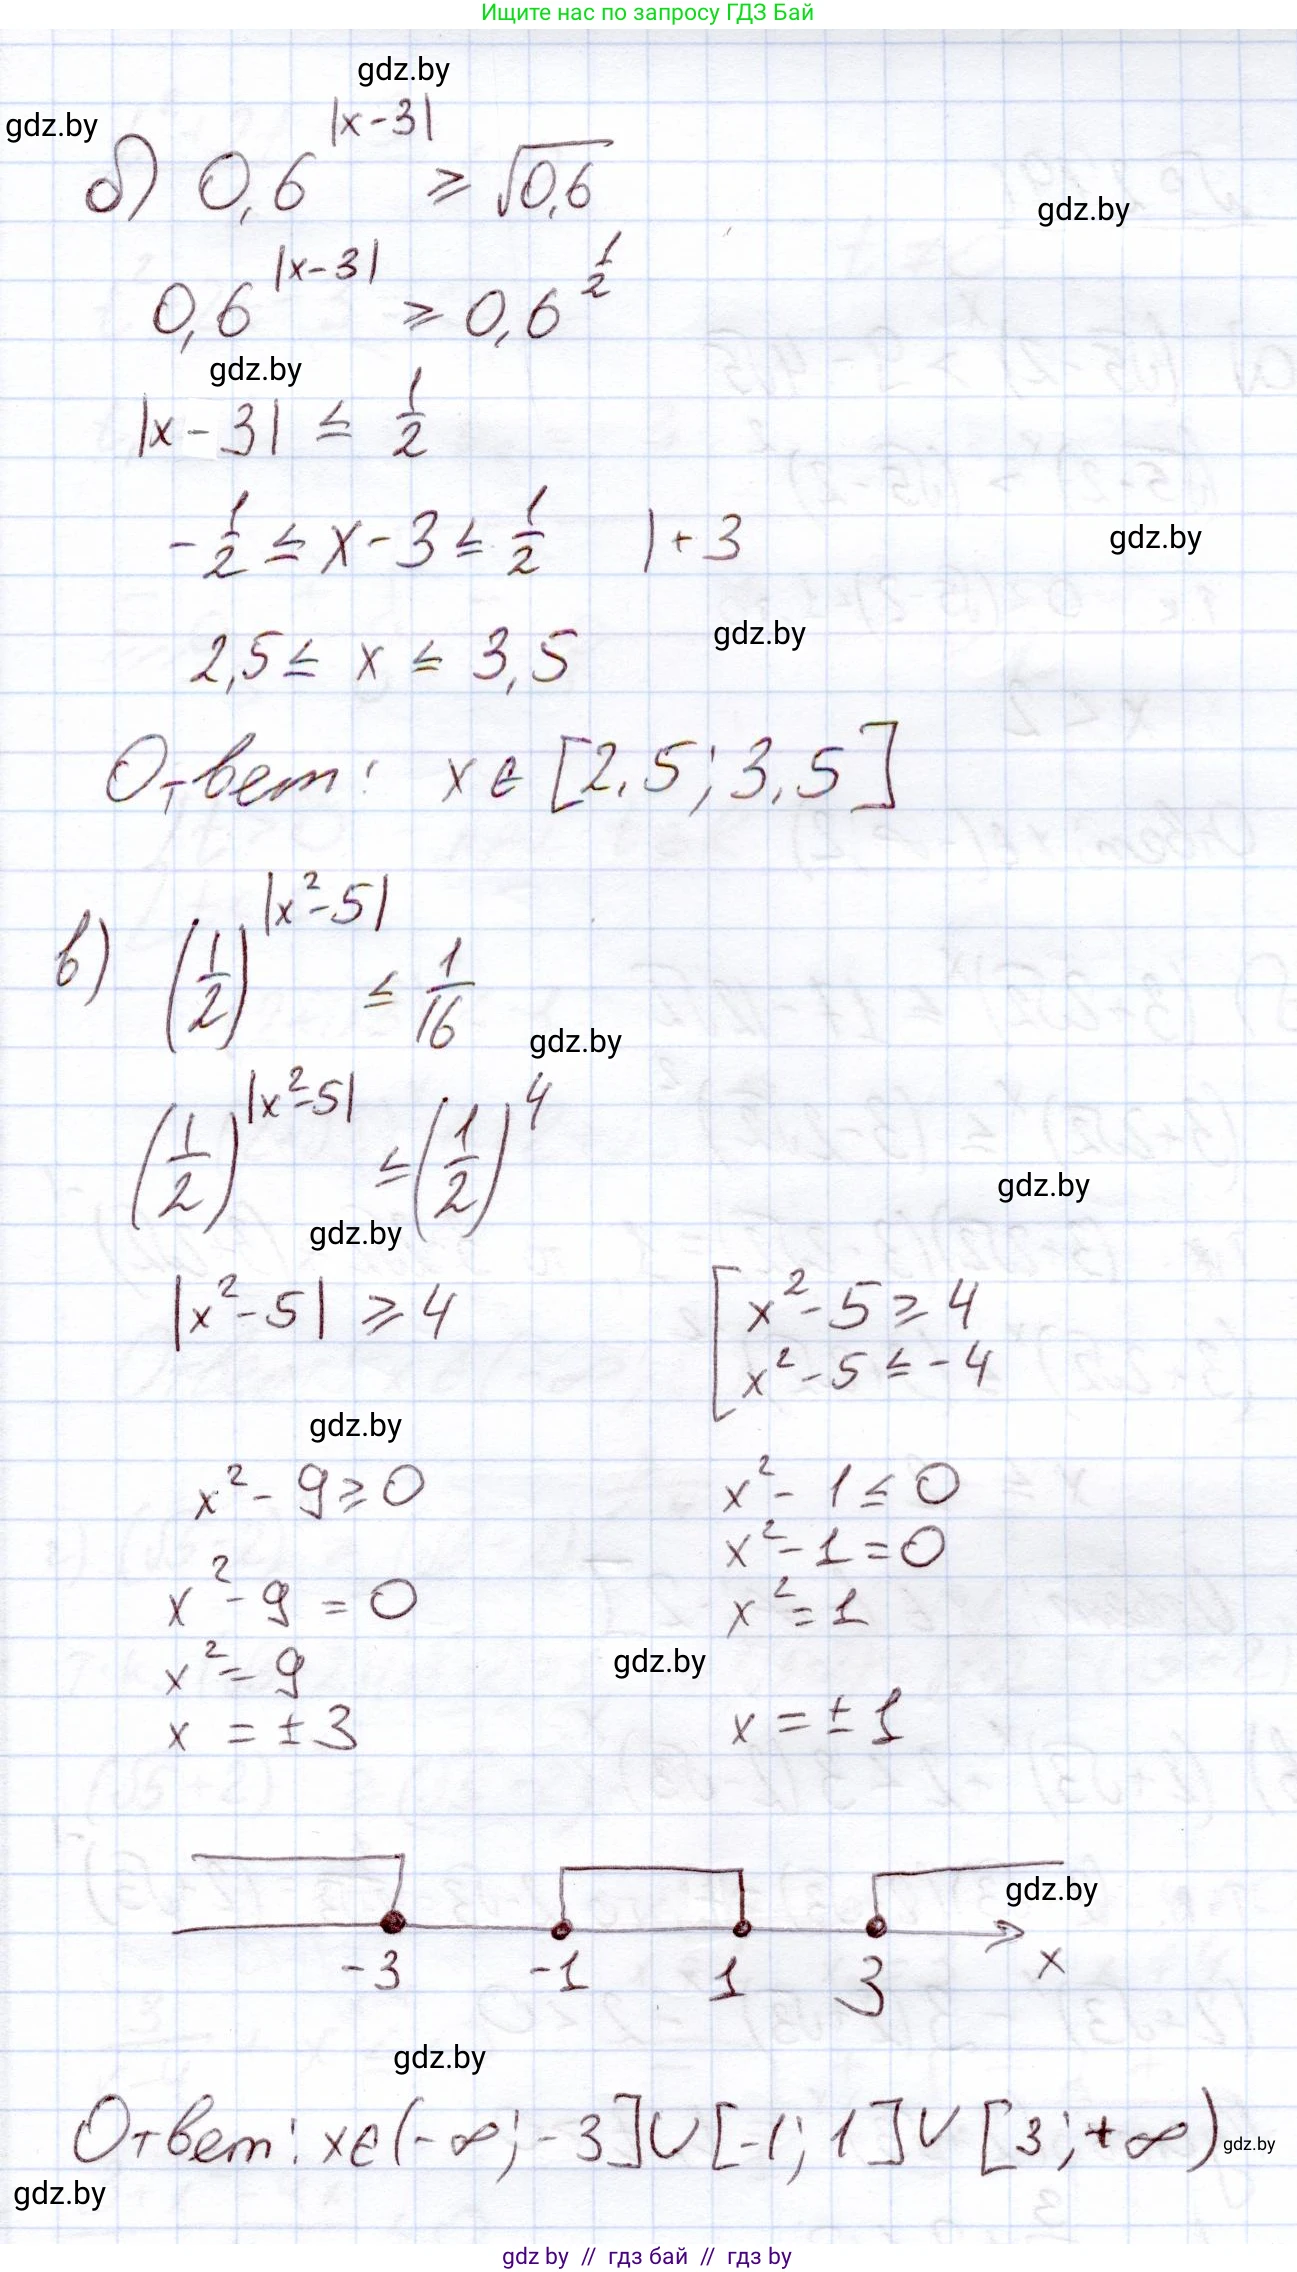 Ищите нас по запросу ГДЗ Бай
gdz.by
gdz.by
б) 0,6^|x-3| ≥ √0,6
gdz.by
0,6^|x-3| ≥ 0,6^1/2
gdz.by
|x-3| ≤ 1/2
-1/2 ≤ x-3 ≤ 1/2 |+3
gdz.by
gdz.by
2,5 ≤ x ≤ 3,5
Ответ: x ∈ [2,5; 3,5]
в) (1/2)^|x²-5| ≤ 1/16
gdz.by
(1/2)^|x²-5| ≤ (1/2)^4
gdz.by
gdz.by
|x²-5| ≥ 4 [ x²-5 ≥ 4
x²-5 ≤ -4
gdz.by
x²-9 ≥ 0 x²-1 ≤ 0
x²-9 = 0 x²-1 = 0
x² = 9 x² = 1
gdz.by
x = ±3 x = ±1
gdz.by
-3 -1 1 3 x
gdz.by
Ответ: x∈(-∞; -3]∪[-1; 1]∪[3; +∞)
gdz.by
gdz.by
gdz by // гдз бай // гдз by